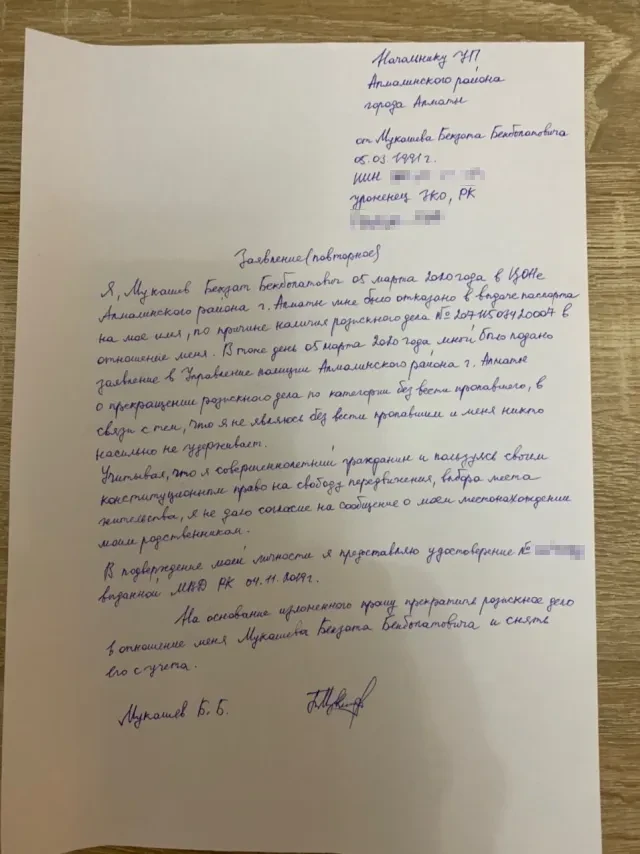 Начальнику УП
Алмалинского района
города Алматы
от Мукашева Бекзата Бекболатовича
05.03.1991г.
ИИН
уроженец ЗКО, РК
Заявление (повторное)
Я, Мукашев Бекзат Бекболатович 05 марта 2020 года в ЦОНе
Алмалинского района г. Алматы мне было отказано в выдаче паспорта
на мое имя, по причине наличия розыскного дела № в
отношение меня. В тоже день 05 марта 2020 года мной было подано
заявление в Управление полиции Алмалинского района г. Алматы
о прекращении розыскного дела по категории без вести пропавшего, в
связи с тем, что я не являюсь без вести пропавшим и меня никто
насильно не удерживает.
Учитывая, что я совершеннолетний гражданин и пользуясь своим
конституционным право на свободу передвижения, выбора места
жительства, я не даю согласие на сообщение о моем местонахождении
моим родственникам.
В подтверждение моей личности я представляю удостоверение №
выданной МВД РК 04.11.2019г.
На основание изложенного прошу прекратить розыскное дело
в отношение меня Мукашева Бекзата Бекболатовича и снять
его с учета.
Мукашев Б. Б.